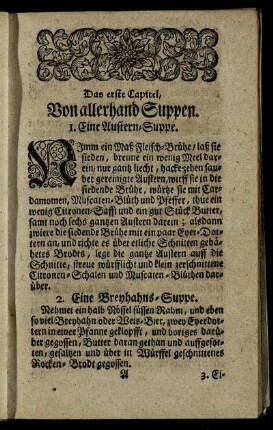 Das erste Capitel,
Von allerhand Suppen.
1. Eine Austern-Suppe.
NImm ein Maß Fleisch-Brühe/ laß sie
sieden, brenne ein wenig Meel dar-
ein, nur gantz liecht, hacke zehen sau-
ber gereinigte Austern, wirff sie in die
siedende Brühe, würtze sie mit Car-
damomen, Muscaten-Blüth und Pfeffer, thue ein
wenig Citronen-Safft und ein gut Stück Butter,
samt noch sechs gantzen Austern darein; alsdann
zwiere die siedende Brühe mit ein paar Eyer-Dot-
tern an, und richte es über etliche Schnitten gebä-
hetes Brodts, lege die gantze Austern auff die
Schnitte, streue würfflicht und klein zerschnittene
Citronen-Schalen und Muscaten-Blüthen dar-
über.
2. Eine Breyhahns-Suppe.
Nehmet ein halb Nössel süssen Rahm, und eben
so viel Breyhahn oder Weis-Bier, zwey Eyerdot-
tern in einer Pfanne geklopfft, und voriges darü-
ber gegossen, Butter daran gethan und auffgesot-
ten, gesaltzen und über in Würffel geschnittenes
Rocken-Brodt gegossen.
A 3. Ei-